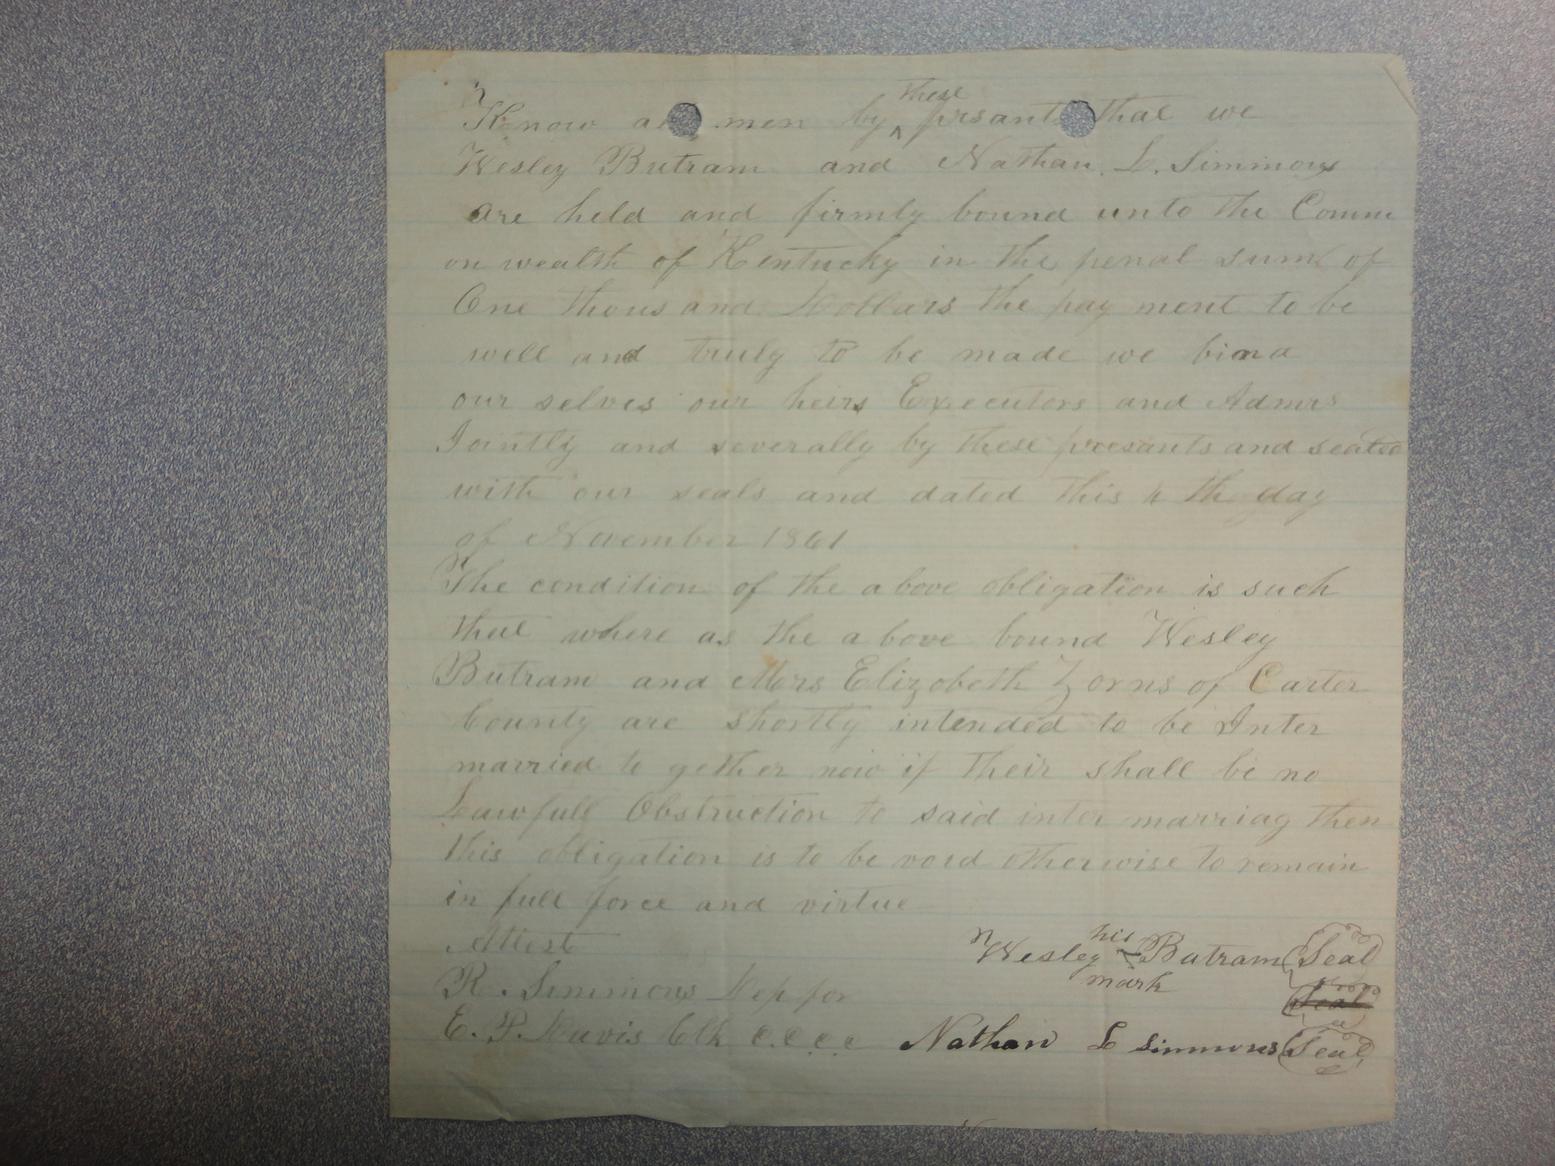 Know all men by these prsants that we
Wesley Butram and Nathan L. Simmons
are held and firmly bound unto the Comm
on wealth of Kentucky in the penal sum of
One thousand Dollars the pay ment to be
well and truly to be made we bind
our selves our heirs Executors and Admrs
Jointly and severally by these presants and sealed
with our seals and dated this 4 th day
of November 1861
The condition of the above obligation is such
that where as the above bound Wesley
Butram and Mrs Elizobeth Zorns of Carter
County are shortly intended to be Inter
married to gether now if their shall be no
Lawfull Obstruction to said inter marriag then
this obligation is to be void otherwise to remain
in full force and virtue
Attest
Wesley his Butram Seal
mark
R. Simmons Dep for
Seal
E. P. Davis Clk C.C.C.C
Nathan L Simmons Seal